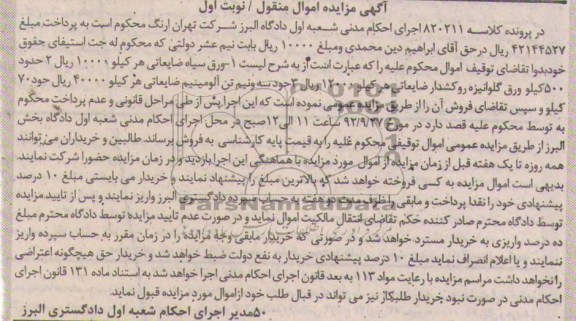 آگهی مزایده اموال منقول / نوبت اول
در پرونده کلاسه ۸۲۰۲۱۱ اجرای احکام مدنی شعبه اول دادگاه البرز شرکت تهران ارنگ محکوم است به پرداخت مبلغ
۴۲۱۴۴۵۲۷ ریال درحق آقای ابراهیم دین محمدی ومبلغ ۱۰۰۰۰ ریال بابت نیم عشر دولتی که محکوم له جت استیفای حقوق
خودبدوا تقاضای توقیف اموال محکوم علیه را که عبارت است از به شرح لیست ۱-ورق سیاه ضایعاتی هر کیلو ۱۰۰۰۰ ریال ۲ حدود
۵۰۰کیلو ورق گلوانیزه روکشدار ضایعاتی هر کیلو ریال ۳ حدود سه ونیم تن آلومینیم ضایعاتی هر کیلو ۴۰۰۰۰ ریال حود ۷۰
کیلو و سپس تقاضای فروش آن را از طریق مزایده عمومی نموده است که این اجرا پس از طی مراحل قانونی و عدم پرداخت محکوم
به توسط محکوم علیه قصد دارد در مورخ ۹۲/۹/۲۷ ساعت ۱۱ الی ۱۲صبح در محل اجرای احکام مدنی شعبه اول دادگاه بخش
البرز از طریق مزایده عمومی اموال توقیفی محکوم علیه را به قیمت پایه کارشناسی به فروش برساند. طالبین و خریداران می توانند
همه روزه تا یک هفته قبل از زمان مزایده از اموال مورد مزایده با هماهنگی این اجرا بازدید و در زمان مزایده حضورا شرکت نمایند.
بدیهی است اموال مزایده به کسی فروخته خواهد شد که بالاترین مبلغ را پیشنهاد نمایند و خریدار می بایستی مبلغ ۱۰ درصد
پیشنهادی خود را نقدا پرداخت و مابقی را ظرف مدت دادگستری البرز واریز نمایند و پس از تایید مزایده
توسط دادگاه محترم صادر کننده حکم تقاضای انتقال مالکیت اموال نماید و در صورت عدم تایید مزایده توسط دادگاه محترم مبلغ
ده درصد واریزی به خریدار مسترد خواهد شد و در صورتی که خریدار مابقی وجه مزایده را در زمان مقرر به حساب سپرده واریز
ننمایند و یا اعلام انصراف نماید مبلغ ۱۰ درصد پیشنهادی خریدار به نفع دولت ضبط خواهد شد و خریدار حق هیچگونه اعتراضی
را نخواهد داشت مراسم مزایده با رعایت مواد ۱۱۳ به بعد قانون اجرای احکام مدنی اجرا خواهد شد به استناد ماده ۱۳۱ قانون اجرای
احکام مدنی در صورت نبود خریدار طلبکار نیز می تواند در قبال طلب خود از اموال مورد مزایده قبول نماید.
۵۰مدیر اجرای احکام شعبه اول دادگستری البرز